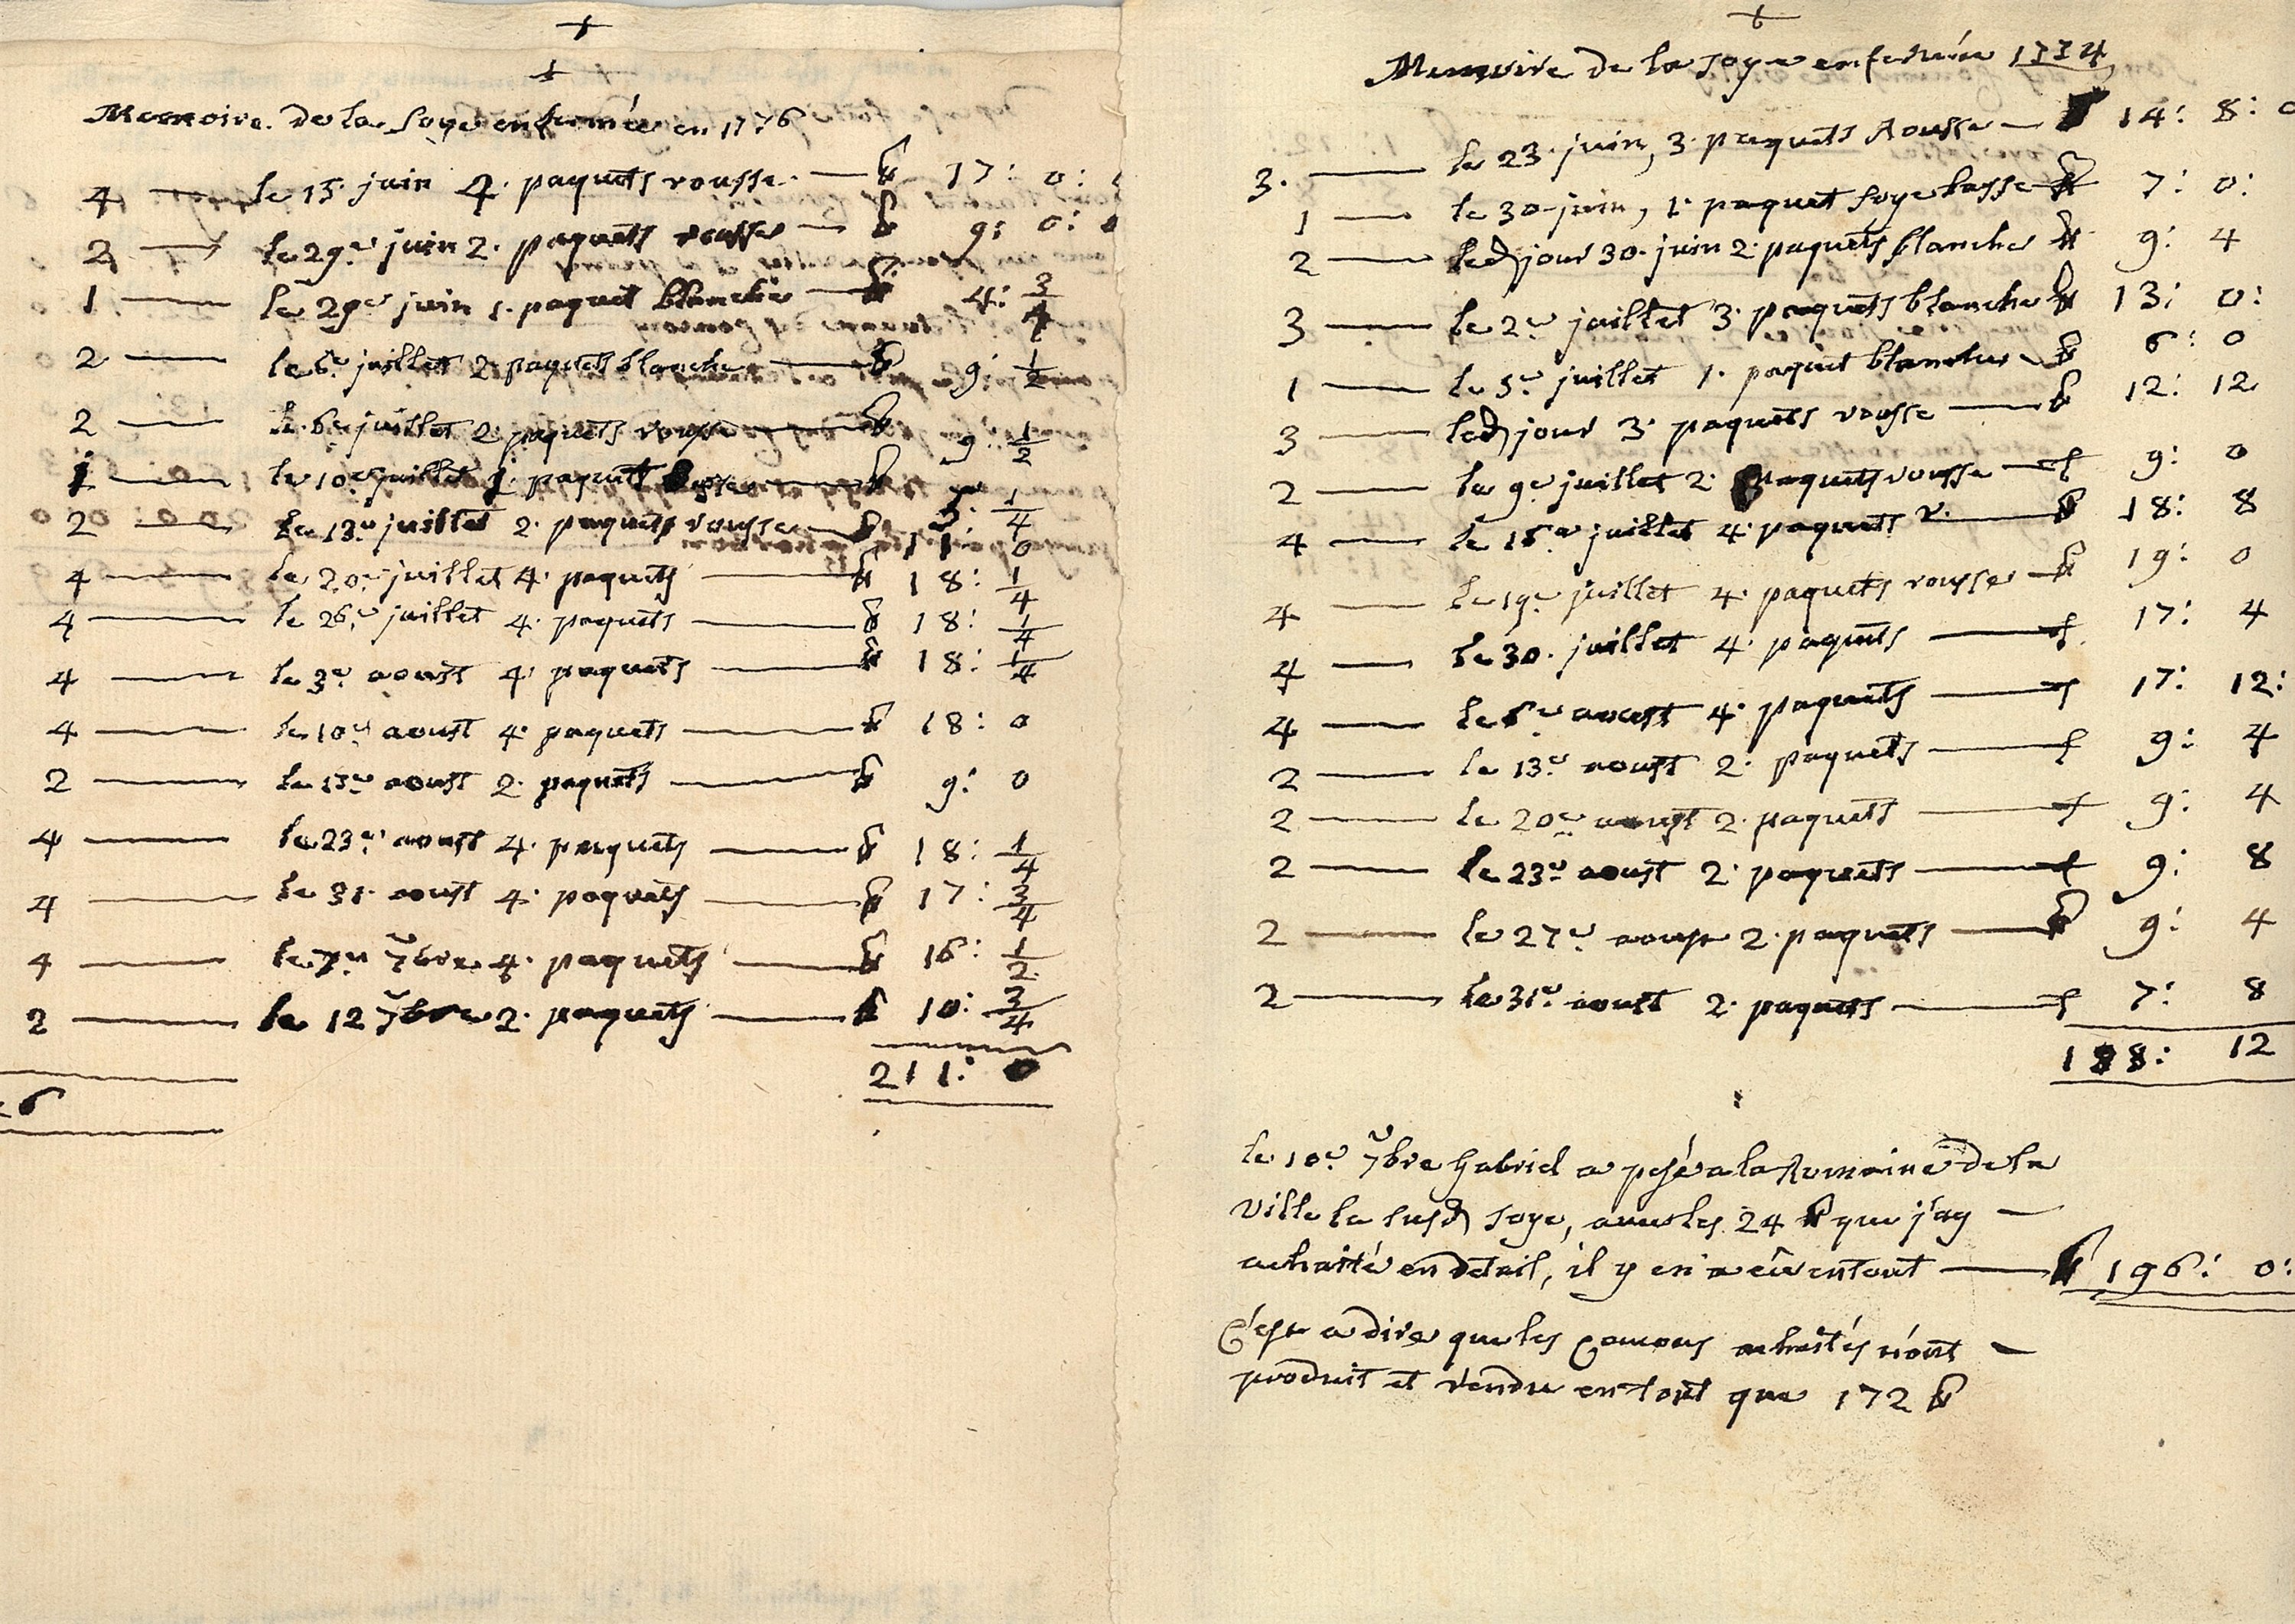 Memoire de la soye enfermée en 1776
4 — le 15 juin 4. paquets rousse — ℔ 17: 0:
2 — le 29.e juin 2. paquets rousse — ℔ 9: 0: 0
1 — le 29.e juin 1. paquet blanche — ℔ 4: 3/4
2 — le 6.e juillet 2. paquets blanche — ℔ 9: 1/2
2 — le 6.e juillet 2. paquets rousse — ℔ 9: 1/2
1 — le 10.e juillet 1. paquet — ℔ 5: 1/4
2 — le 13.e juillet 2. paquets rousse — ℔ 11: 0
4 — le 20.e juillet 4. paquets — ℔ 18: 1/4
4 — le 26.e juillet 4. paquets — ℔ 18: 1/4
4 — le 3.e aoust 4. paquets — ℔ 18: 1/4
4 — le 10.e aoust 4. paquets — ℔ 18: 0
2 — le 13.e aoust 2. paquets — ℔ 9: 0
4 — le 23.e aoust 4. paquets — ℔ 18: 1/4
4 — le 31. aoust 4. paquets — ℔ 17: 3/4
4 — le 7.e 7bre 4. paquets — ℔ 16: 1/2
2 — le 12 7bre 2. paquets — ℔ 10: 3/4
211: 0
6
Memoire de la soye enfermée 1774
3. — le 23. juin, 3. paquets Rousse — ℔ 14: 8: 0
1 — le 30 juin, 1. paquet soye basse ℔ 7: 0:
2 — led jour 30. juin 2. paquets blanche ℔ 9: 4
3 — le 2.e juillet 3. paquets blanche ℔ 13: 0:
1 — le 5.e juillet 1. paquet blanche ℔ 6: 0
3 — led jour 3. paquets rousse — ℔ 12: 12
2 — le 9.e juillet 2. paquets rousse — ℔ 9: 0
4 — le 15.e juillet 4. paquets r. — ℔ 18: 8
4 — le 19.e juillet 4. paquets rousse — ℔ 19: 0
4 — le 30. juillet 4. paquets — ℔ 17: 4
4 — le 6.e aoust 4. paquets — ℔ 17: 12:
2 — le 13.e aoust 2. paquets — ℔ 9: 4
2 — le 20.e aoust 2. paquets — ℔ 9: 4
2 — le 23.e aoust 2. paquets — ℔ 9: 8
2 — le 27.e aoust 2. paquets — ℔ 9: 4
2 — le 31.e aoust 2. paquets — ℔ 7: 8
188: 12
le 10.e 7bre Gabriel a pesé a la Romaine de la
ville la susd soye, avec les 24 ℔ que j'ay —
achaité en detail, il y en a eû en tout — ℔ 196: 0:
C'est a dire que les Cocons achaités n'ont —
produit et rendu en tout que 172 ℔